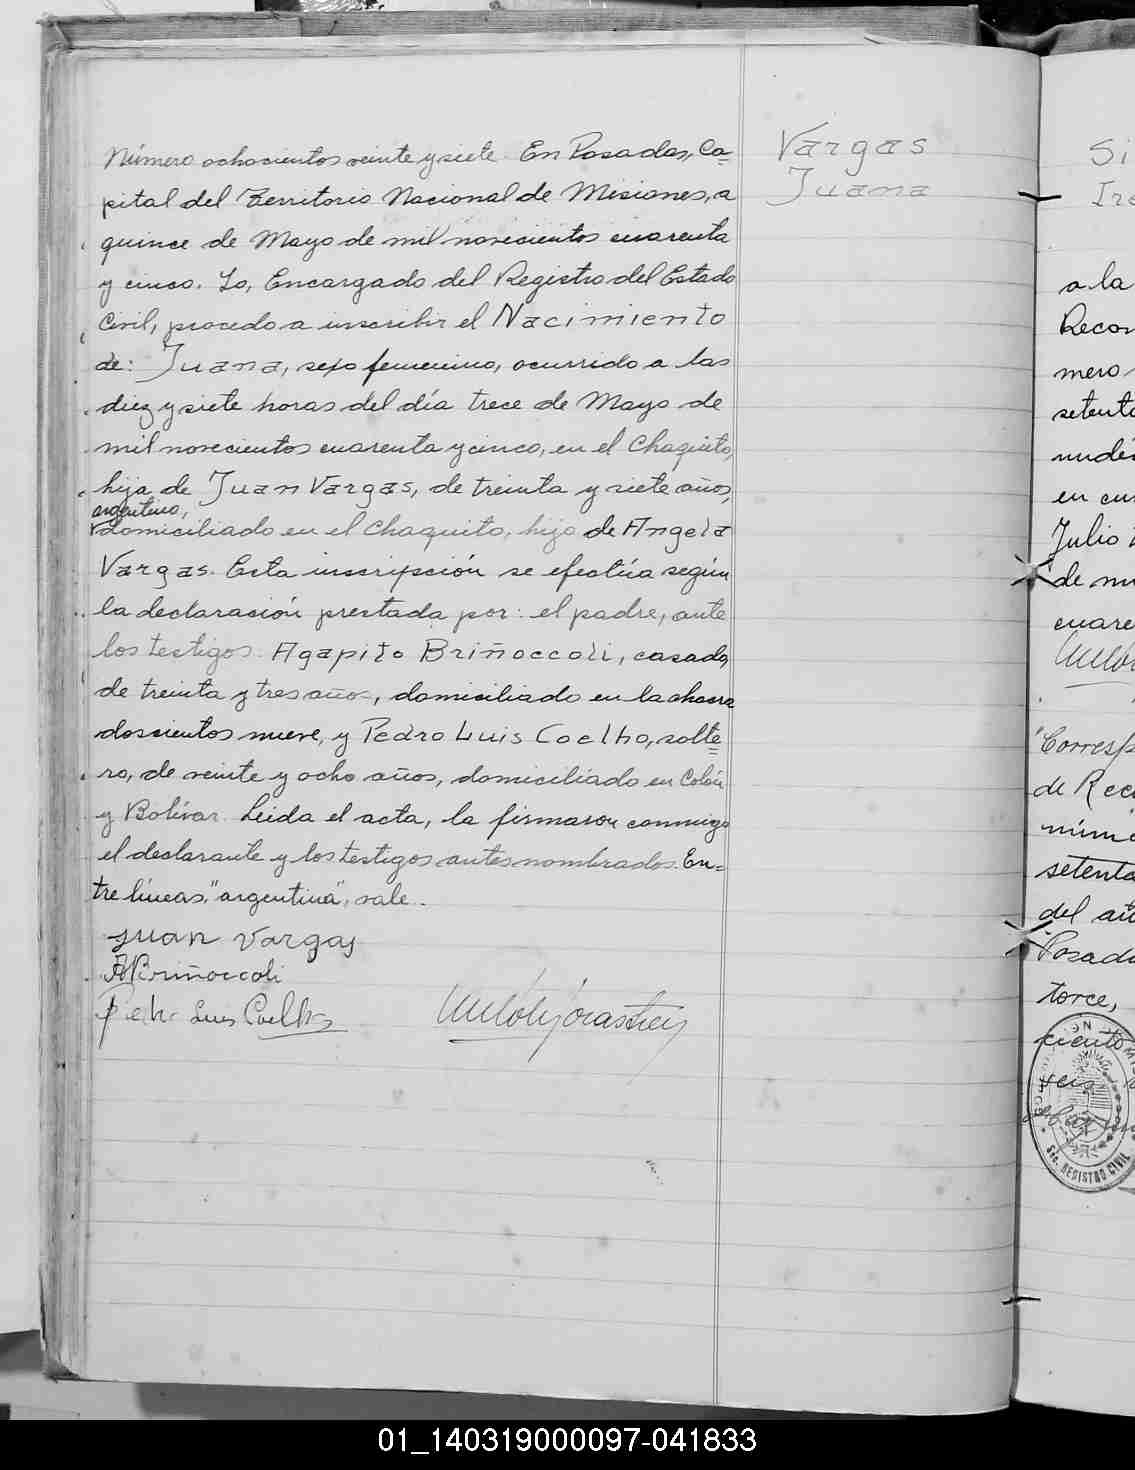 Número ochocientos veinte y siete. En Posadas, Ca=
pital del Territorio Nacional de Misiones, a
quince de Mayo de mil novecientos cuarenta
y cinco. Yo, Encargado del Registro del Estado
Civil, procedo a inscribir el Nacimiento
de: Juana, sexo femenino, ocurrido a las
diez y siete horas del día trece de Mayo de
mil novecientos cuarenta y cinco, en el Chaquito,
hija de Juan Vargas, de treinta y siete años,
argentino,
domiciliado en el Chaquito, hijo de Angela
Vargas. Esta inscripción se efectúa según
la declaración prestada por: el padre, ante
los testigos: Agapito Briñoccoli, casado,
de treinta y tres años, domiciliado en la chacra
doscientos nueve, y Pedro Luis Coelho, solte=
ro, de veinte y ocho años, domiciliado en Colón
y Bolívar. Leida el acta, la firmaron conmigo
el declarante y los testigos antes nombrados. En=
tre líneas, "argentino", vale.
Juan Vargas
A Briñoccoli
Pedro Luis Coelho
Vargas
Juana
Si
Ire
a la
Recon
mero
setenta
en cu
Julio
de mi
cuare
"Corresp
de Reco
núme
setenta
del añ
Posada
torce,
ciento
seis
SEC. REGISTRO CIVIL
01_140319000097-041833